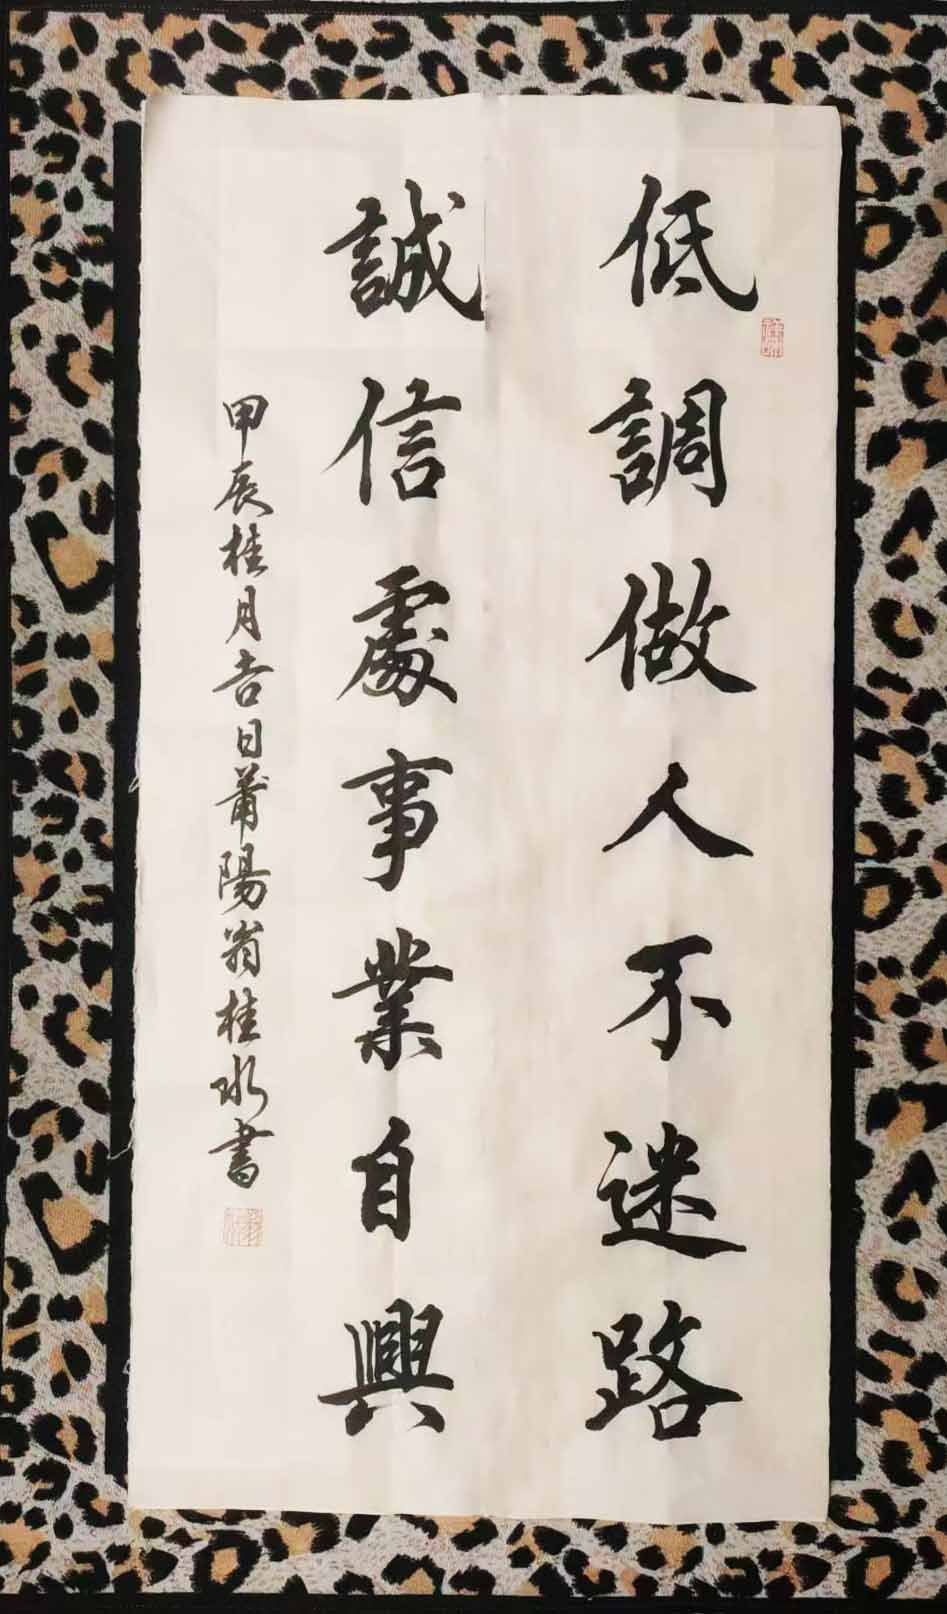 低調做人不迷路
誠信處事業自興
甲辰桂月吉日莆陽翁桂水書